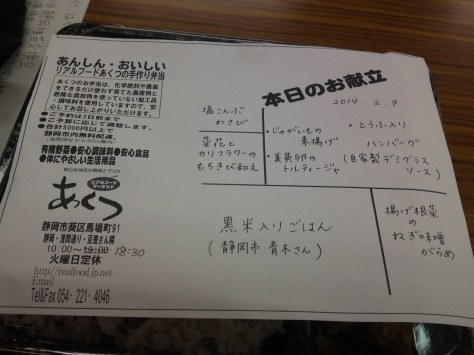 あんしん・おいしい
リアルフードあくつの手作り弁当
あくつのお弁当は、化学肥料や農薬
をできるだけ使わず育てた農産物と
有害な添加物を使っていない加工品
・調味料を使用していますので、安
心してお召し上がりいただけます。
●ご予約は2日前まで
●ご予算に応じて調製します。
●合計5000円以上で
静岡市内無料配達。
有機野菜●安心調味料●安心食品
●体にやさしい生活用品
安心な地元の野菜とナチュ
リアルフード
マーケット
あくつ
静岡市葵区馬場町91
静岡・浅間通り・豆豊さん隣
10:00～19:00 18:30
火曜日定休
http://realfood.jp.net
Email
Tel&Fax 054-221-4046
本日のお献立
2014.2.9
塩こんぶ
わさび
菜花と
カリフラワーの
もちきび和え
・じゃがいもの
素揚げ
・美黄卵の
トルティージャ
・とうふ入り
ハンバーグ
(自家製デミグラス
ソース)
黒米入りごはん
(静岡市 青木さん)
揚げ根菜
の
ねぎ味噌
がらめ